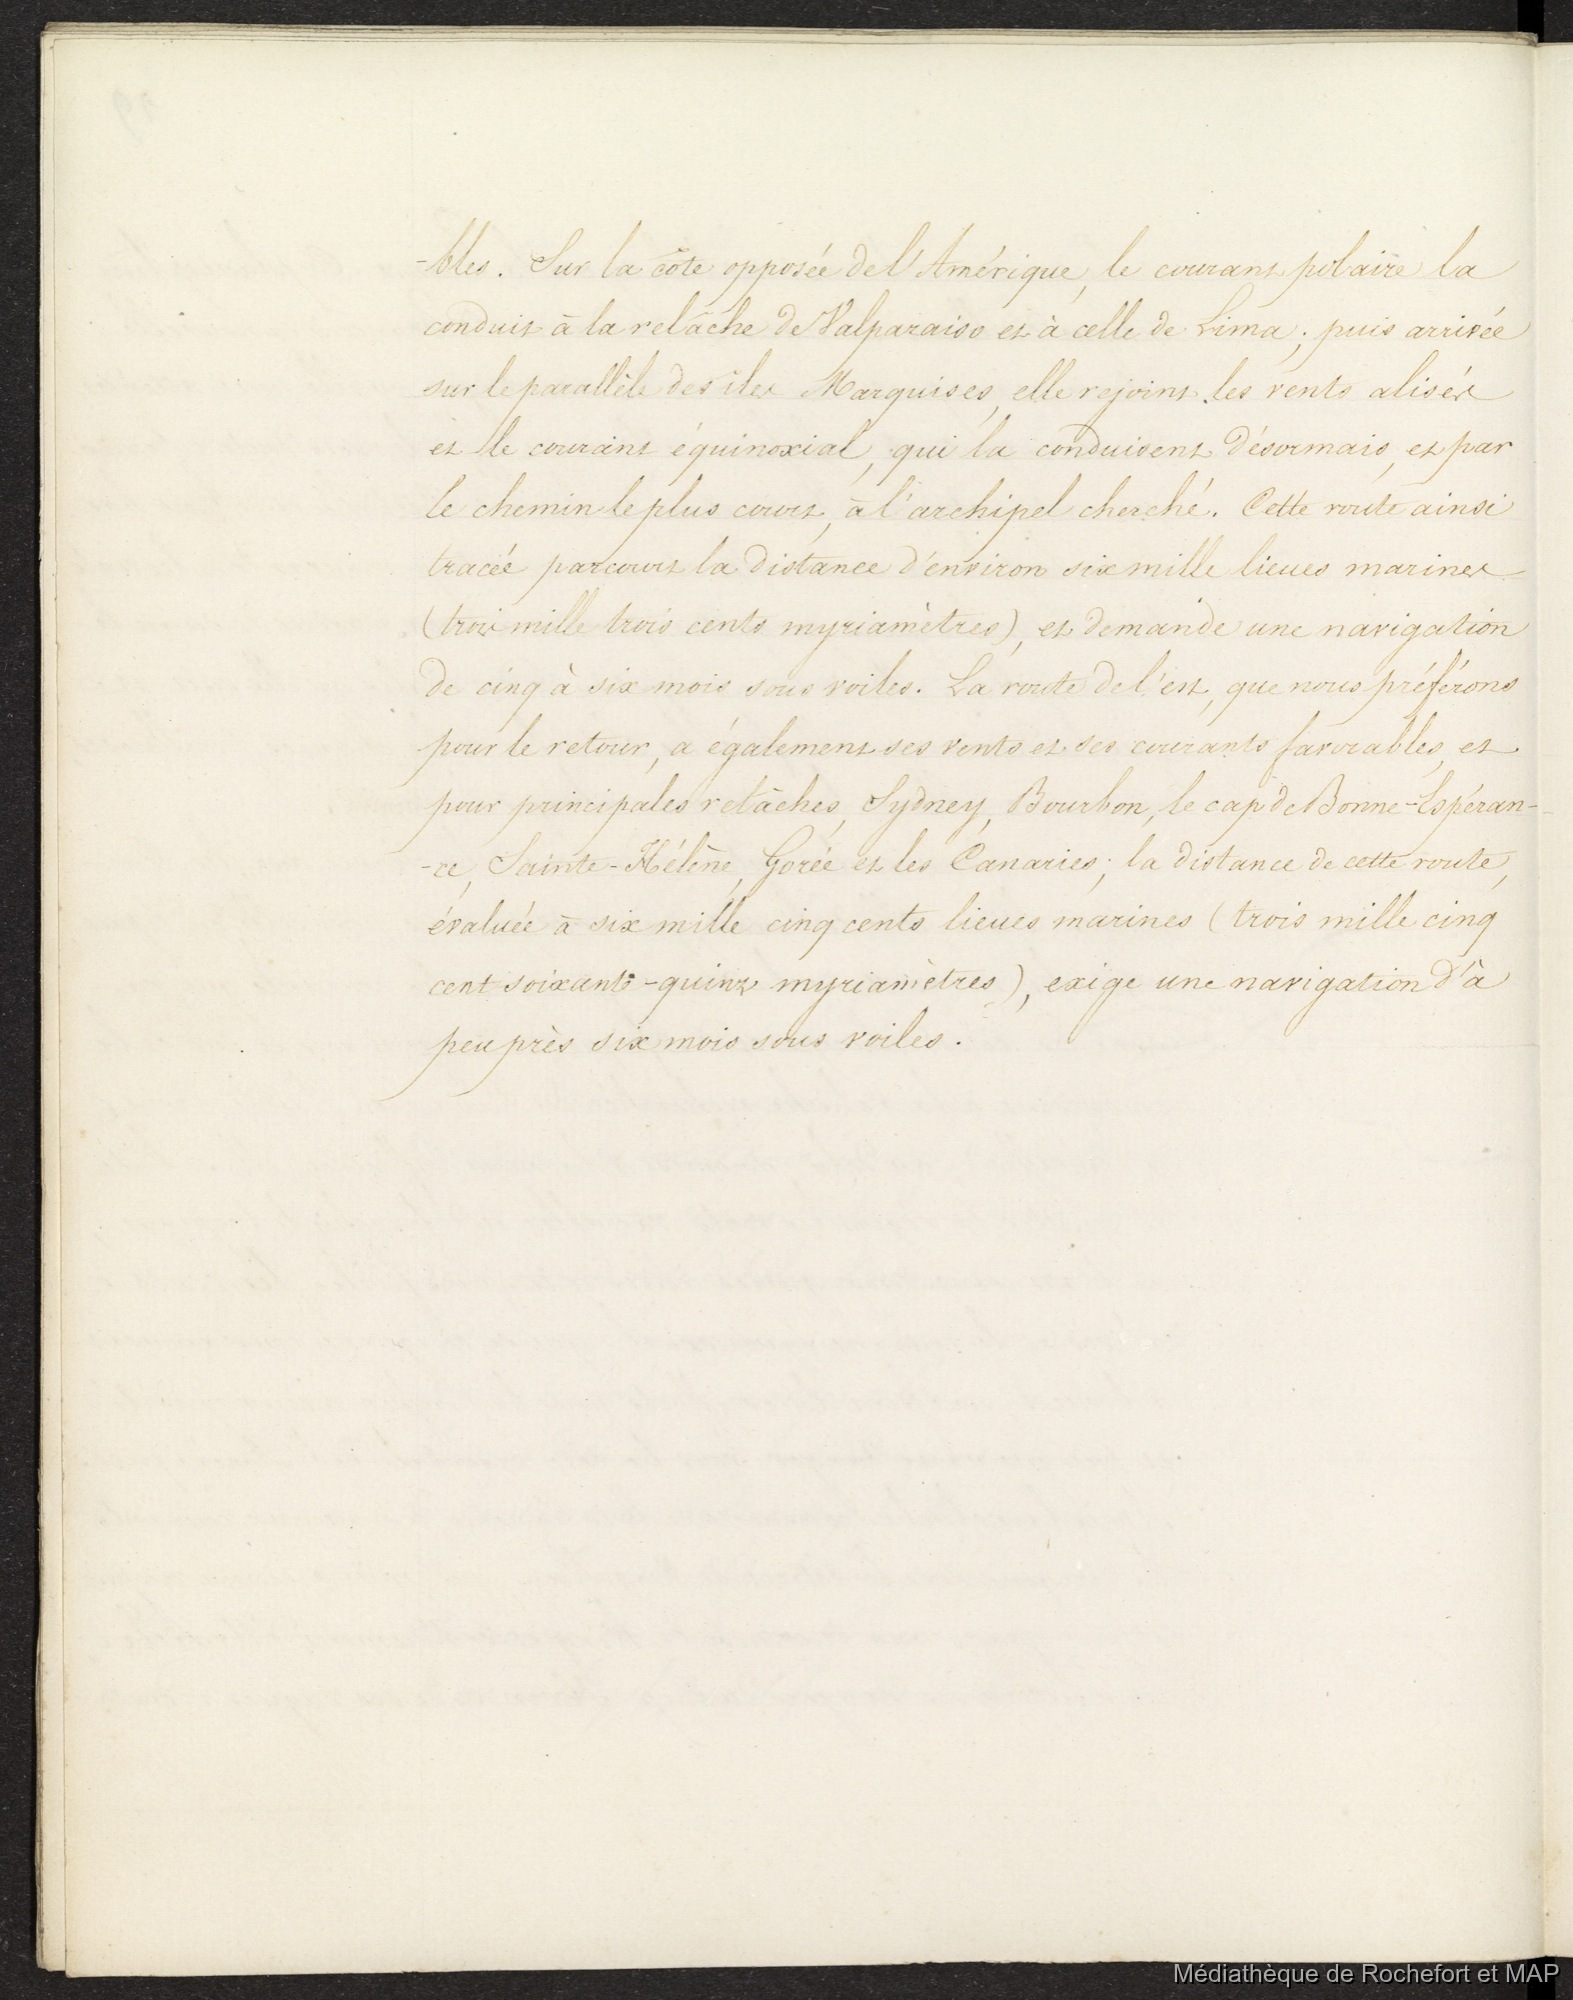 -bles. Sur la côte opposée de l'Amérique, le courant polaire la
conduit à la relâche de Valparaiso et à celle de Lima; puis arrivée
sur le parallèle des îles Marquises, elle rejoint les vents alisés
et le courant équinoxial, qui la conduisent désormais, et par
le chemin le plus court, à l'archipel cherché. Cette route ainsi
tracée parcourt la distance d'environ six mille lieues marines
(trois mille trois cents myriamètres), et demande une navigation
de cinq à six mois sous voiles. La route de l'est, que nous préférons
pour le retour, a également ses vents et ses courants favorables, et
pour principales relâches, Sydney, Bourbon, le cap de Bonne-Espéran-
-ce, Sainte-Hélène, Gorée et les Canaries; la distance de cette route,
évaluée à six mille cinq cents lieues marines (trois mille cinq
cent soixante-quinze myriamètres), exige une navigation d'à
peu près six mois sous voiles.
Médiathèque de Rochefort et MAP